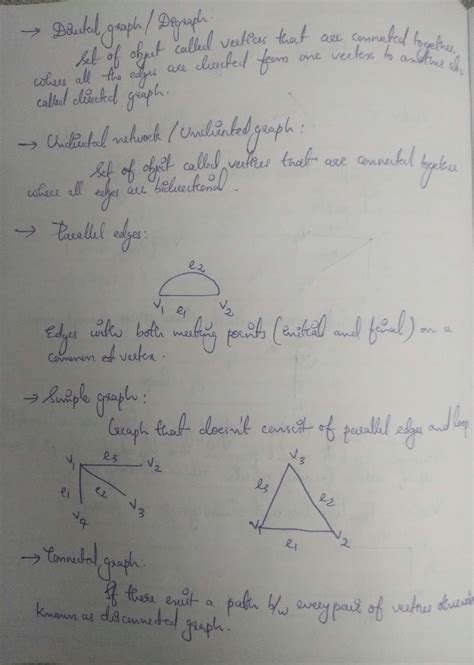 → Directed graph / Digraph.
Set of object called vertices that are connected together,
where all the edges are directed from one vertex to another is
called directed graph.
→ Undirected network / Undirected graph :
Set of object called vertices that are connected together
where all edges are bidirectional.
→ Parallel edges:
e2
V1 e1 V2
Edges with both meeting points (initial and final) on a
common vertex.
→ Simple graph:
Graph that doesn't consist of parallel edges and loop
V1 e3 V2
e1 e2
V4 V3
V3
e3 e2
V1 e1 V2
→ Connected graph.
If there exist a path b/w every pair of vertices
known as disconnected graph.